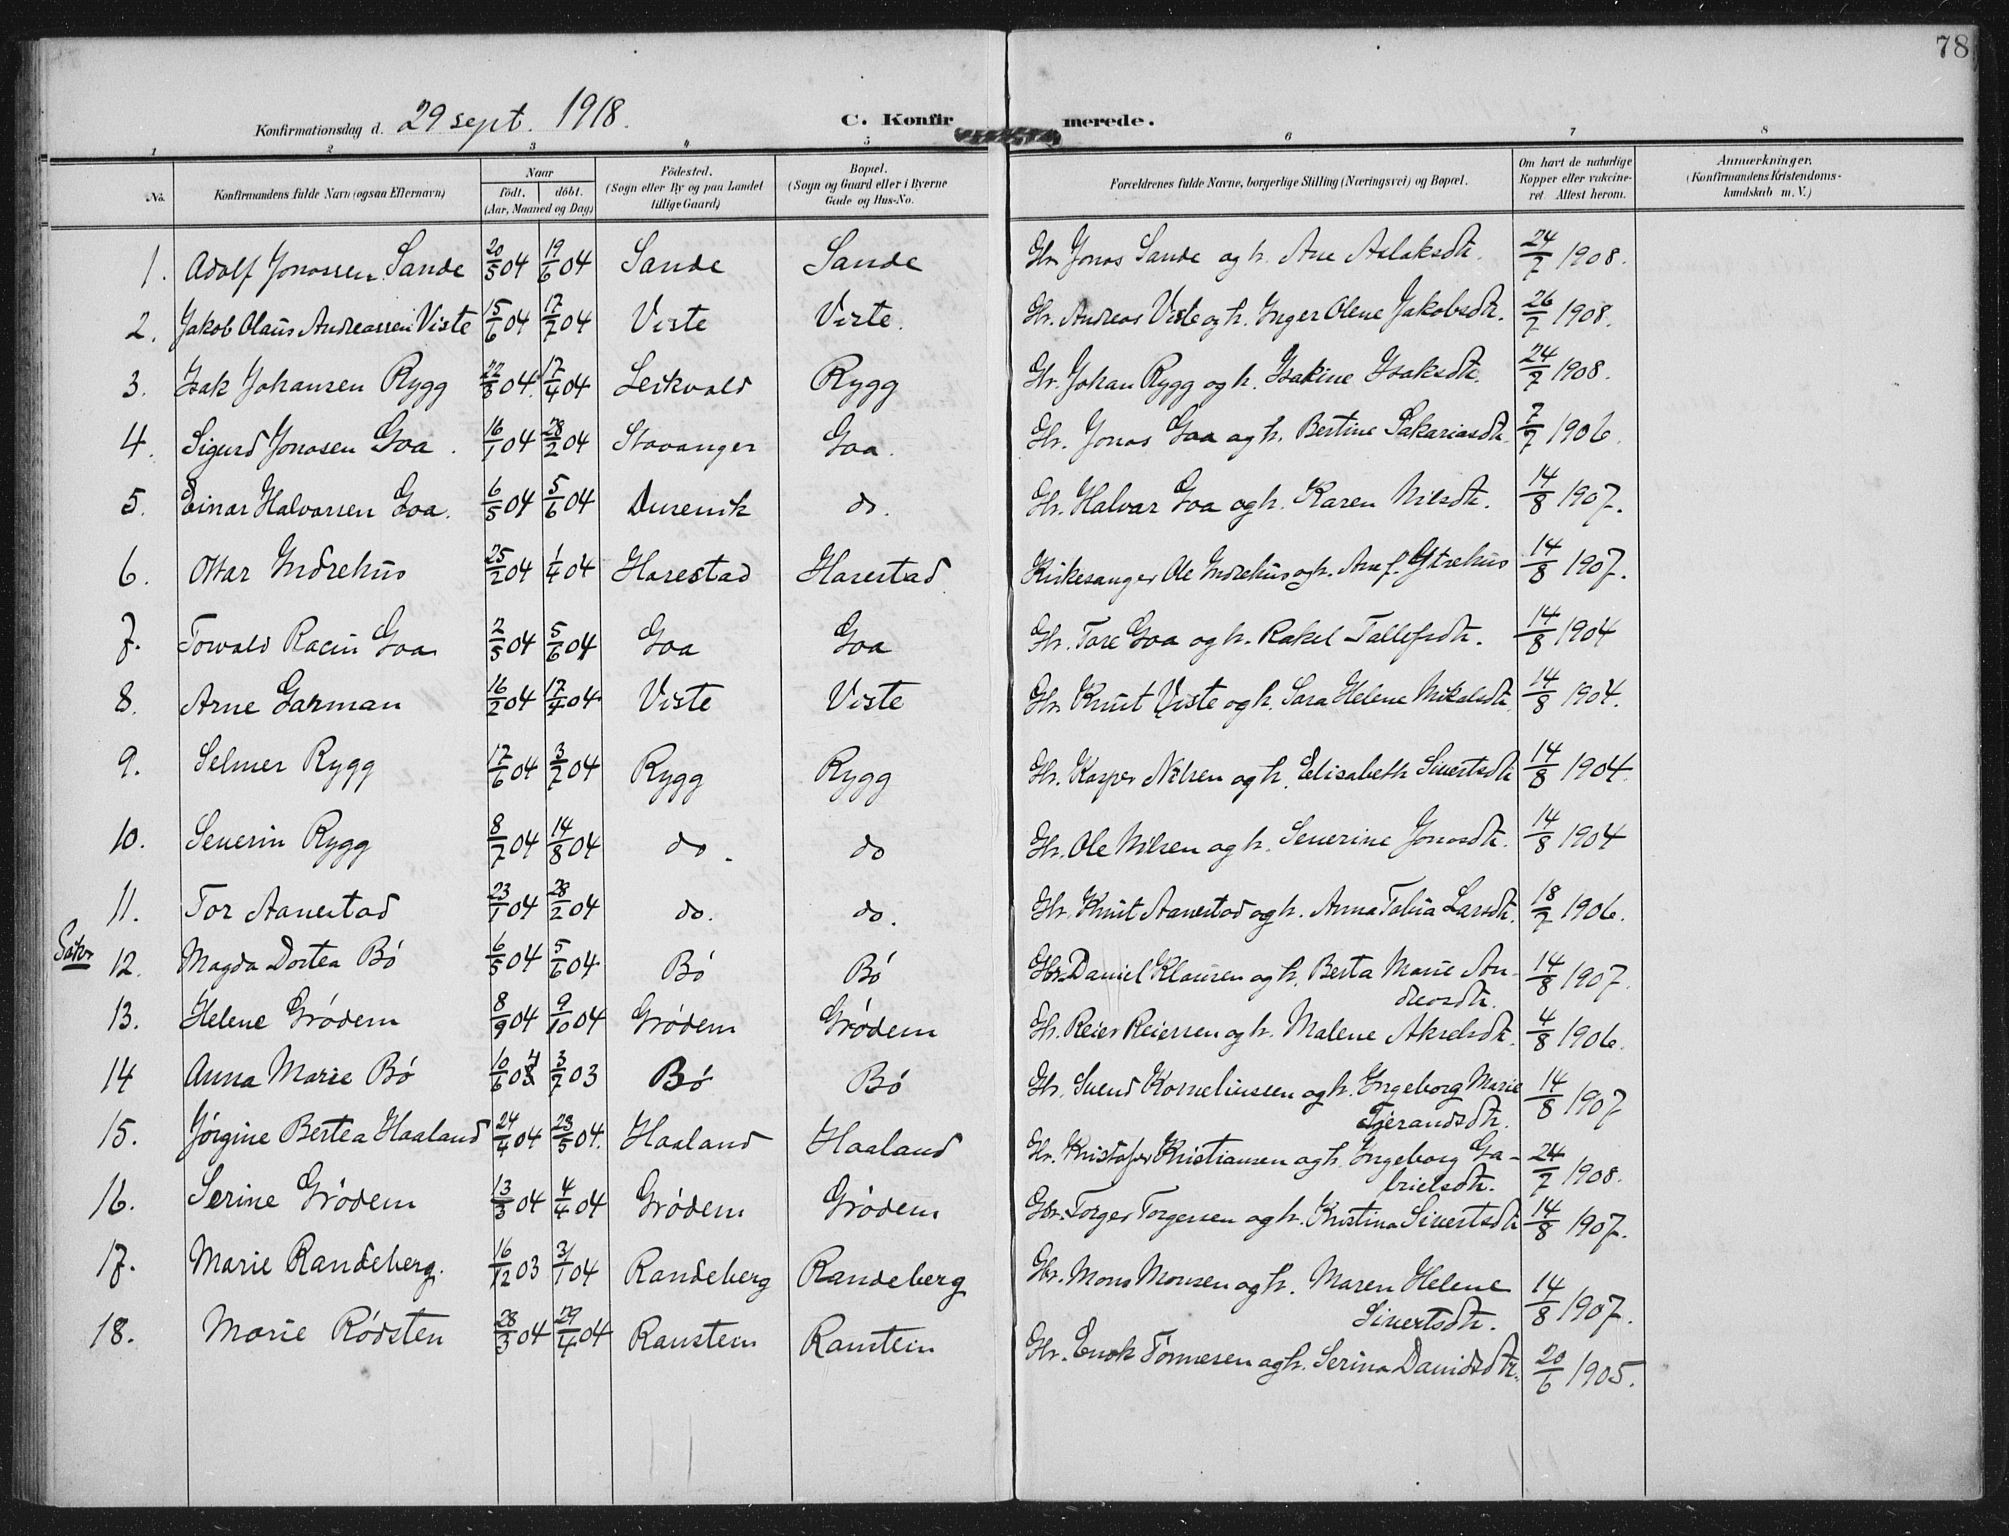 78
Konfirmationsdag d. 29 sept. 1918.
C. Konfirmerede.
1 2 3 4 5 6 7 8
No.
Konfirmandens fulde Navn (ogsaa Efternavn)
Naar
födt. döbt.
(Aar, Maaned og Dag)
Födested.
(Sogn eller By og paa Landet
tillige Gaard)
Bopæl.
(Sogn og Gaard eller i Byerne
Gade og Hus-No.
Forældrenes fulde Navne, borgerlige Stilling (Næringsvei) og Bopæl.
Om havt de naturlige
Kopper eller vakcine-
ret. Attest herom.
Anmerkninger.
(Konfirmandens Kristendoms-
kundskab m. V.)
1. Adolf Jonassen Sande 20/5 04 19/6 04 Sande Sande Gbr. Jonas Sande og h. Ane Aslaksdtr. 24/7 1908.
2. Jakob Olaus Andreassen Viste 15/6 04 17/7 04 Viste Viste. Gbr. Andreas Viste og h. Inger Olene Jakobsdtr. 26/7 1908.
3. Isak Johansen Rygg 22/3 04. 17/4 04 Leikvold Rygg Gbr. Johan Rygg og h. Isakine Isaksdtr. 24/7 1908.
4. Sigurd Jonasen Goa. 16/1 04 28/2 04 Stavanger Goa. Gbr. Jonas Goa og h. Bertine Sakariasdtr. 7/7 1906.
5. Einar Halvorsen Goa. 6/5 04 5/6 04 Dusevik do. Gbr. Halvar Goa og h. Karen Nilsdtr. 14/8 1907.
6. Ottar Indrehus 25/2 04 1/4 04 Harestad Harestad Kirkesanger Ole Indrehus og h. Ane f. Ytrehus 14/8 1907.
7. Torvald Racin Goa 2/5 04 5/6 04 Goa Goa Gbr. Tore Goa og h. Rakel Tollefsdtr. 14/8 1904
8. Arne Garman 16/2 04 17/4 04 Viste Viste Gbr. Knut Viste og h. Sara Helene Mikalsdtr. 14/8 1904.
9. Selmer Rygg 17/6 04 3/7 04 Rygg Rygg Gbr. Kasper Nilsen og h. Elisabeth Sivertsdtr 14/8 1904.
10. Severin Rygg 8/7 04 14/8 04 do. do Gbr. Ole Nilsen og h. Severine Jonasdtr. 14/8 1904
11. Tor Aanestad 23/1 04 28/2 04 do. do. Gbr. Knut Aanestad og h. Anna Tabia Larsdtr. 18/7 1906.
12. Magda Dortea Bö 6/5 04 5/6 04 Bö Bö Gbr. Daniel Klausen og h. Berta Marie An-
dreasdtr. 14/8 1907.
13. Helene Grödem 8/9 04 9/10 04 Grödem Grödem Gbr. Reier Reiersen og h. Malene Akselsdtr. 4/8 1906.
14 Anna Marie Bö 10/6 03 4 3/7 03 Bö Bö Gbr. Svend Korneliussen og h. Ingeborg Marie
Tjerandsdtr. 14/8 1907
15. Jörgine Bertea Haaland 24/4 04 23/5 04. Haaland Haaland Gbr. Kristofer Kristiansen og h. Ingeborg Ga-
brielsdtr. 24/7 1908.
16. Serine Grödem 13/3 04 4/4 04 Grödem Grödem Gbr. Torger Torgersen og h. Kristina Sivertsdtr 14/8 1907.
17. Marie Randeberg. 16/12 03 31/1 04 Randeberg Randeberg Gbr. Mons Monsen og h. Maren Helene
Sivertsdtr. 14/8 1907.
18. Marie Rödsten 28/3 04 29/4 04 Ramstein Ramstein Gbr. Enok Tönnesen og h. Serina Davidsdtr. 20/6 1905.